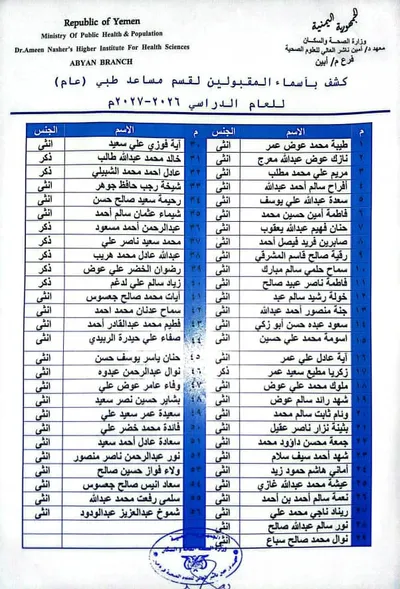 Republic of Yemen
Ministry Of Public Health & Population
Dr.Ameen Nasher's Higher Institute For Health Sciences
ABYAN BRANCH
الجمهورية اليمنية
وزارة الصحة والسكان
معهد د/ أمين ناشر العالي للعلوم الصحية
فرع م/ أبين
كشف بأسماء المقبولين لقسم مساعد طبي (عام)
للعام الدراسي ٢٠٢٦-٢٠٢٧م
م الاسم الجنس م الاسم الجنس
١ طيبة محمد عوض عمر أنثى ٣٠ آية فوزي علي سعيد أنثى
٢ نازك عوض عبدالله معرج أنثى ٣١ خالد محمد عبدالله طالب ذكر
٣ مريم علي محمد مطلب أنثى ٣٢ عادل احمد محمد الشبيلي ذكر
٤ أفراح سالم أحمد عبدالله أنثى ٣٣ شيخة رجب حافظ جوهر أنثى
٥ سعدة عبدالله علي يوسف أنثى ٣٤ رحيمة سعيد صالح حسن أنثى
٦ فاطمة أمين حسين محمد أنثى ٣٥ شيماء عثمان سالم أحمد أنثى
٧ حنان فهيم عبدالله يعقوب أنثى ٣٦ عبدالرحمن أحمد مسعود ذكر
٨ صابرين فريد فيصل أحمد أنثى ٣٧ محمد سعيد ناصر علي ذكر
٩ رقية صالح قاسم المشرقي أنثى ٣٨ عبدالله عادل محمد هريب ذكر
١٠ سماح حلمي سالم مبارك أنثى ٣٩ رضوان الخضر علي عوض ذكر
١١ فاطمة ناصر عبيد صالح أنثى ٤٠ زياد سالم علي لدغم ذكر
١٢ خولة رشيد سالم عبد أنثى ٤١ آيات محمد صالح جعسوس أنثى
١٣ جنة منصور أحمد عبدالله أنثى ٤٢ سماح عدنان محمد أحمد أنثى
١٤ سعود عبده حسن أبو زكي أنثى ٤٣ فطيم محمد عبدالقادر أحمد أنثى
١٥ اسومة محمد علي حسين أنثى ٤٤ صفاء علي حيدرة الربيدي أنثى
١٦ آية عادل علي عمر أنثى ٤٥ حنان ياسر يوسف حسن أنثى
١٧ زكريا مطيع سعيد عمر ذكر ٤٦ نوال عبدالرحمن عبدوه أنثى
١٨ ملوك محمد علي عوض أنثى ٤٧ وفاء عامر عوض علي أنثى
١٩ شهد رائد سالم عوض أنثى ٤٨ بشاير حسين نصر سعيد أنثى
٢٠ ونام ثابت سالم محمد أنثى ٤٩ سعيدة عمر سعيد علي أنثى
٢١ بثينة نزار ناصر عقيل أنثى ٥٠ فائدة محمد خضر علي أنثى
٢٢ جمعة محسن داؤود محمد أنثى ٥١ سعادة عادل أحمد سعيد أنثى
٢٣ شهد أحمد سيف سلام أنثى ٥٢ نور عبدالرحمن ناصر منصور أنثى
٢٤ أماني هاشم حمود زيد أنثى ٥٣ ولاء فواز حسين صالح أنثى
٢٥ عيشة محمد عبدالله غازي أنثى ٥٤ سعاد انيس صالح جعسوس أنثى
٢٦ نعمة سالم أحمد بن أحمد أنثى ٥٥ سلمى رفعت محمد عبدالله أنثى
٢٧ ريناد ناجي محمد علي أنثى ٥٦ شموخ عبدالعزيز عبدالودود أنثى
٢٨ نور سالم عبدالله صالح أنثى
٢٩ نوال محمد صالح سباع أنثى